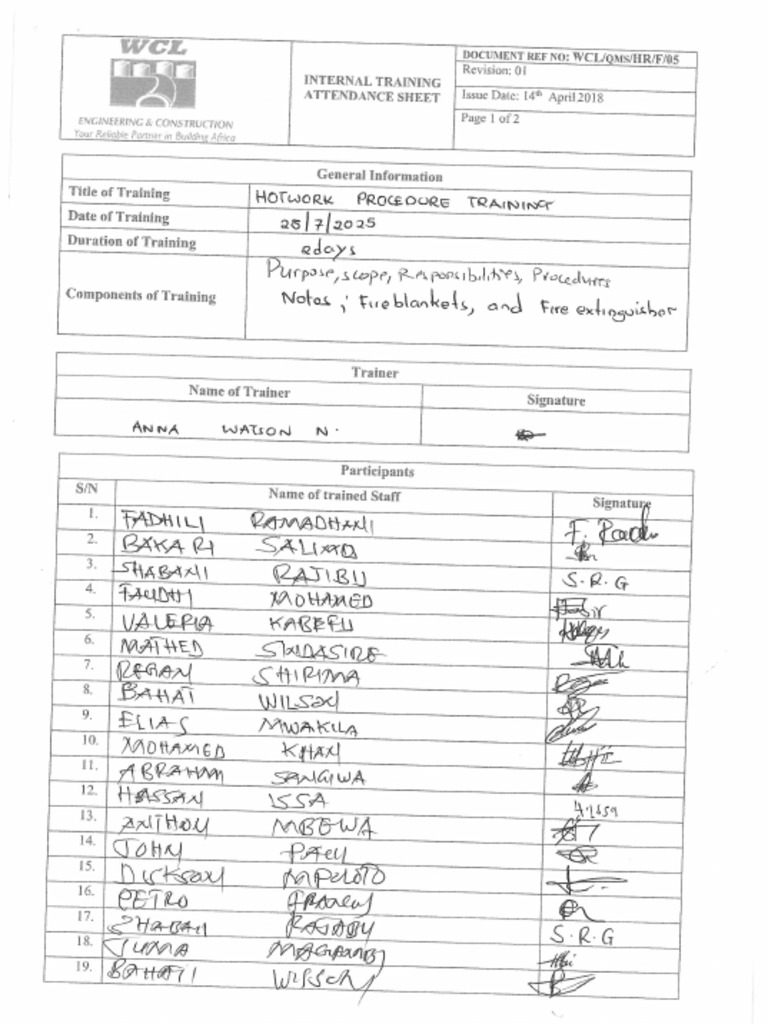 WCL
ENGINEERING & CONSTRUCTION
Your Reliable Partner in Building Africa
INTERNAL TRAINING
ATTENDANCE SHEET
DOCUMENT REF NO: WCL/QMS/HR/F/05
Revision: 01
Issue Date: 14th April 2018
Page 1 of 2
General Information
Title of Training HOTWORK PROCEDURE TRAINING
Date of Training 28/7/2025
Duration of Training 2days
Components of Training Purpose, scope, Responsibilities, Procedures
Notes; Fireblankets, and Fire extinguisher
Trainer
Name of Trainer Signature
ANNA WATSON N.
Participants
S/N Name of trained Staff Signature
1. FADHILI RAMADHANI
2. BAKARI
3. SHABANI RAJIBU S.R.G
4. MOHAMED
5. VALERIA KABEFU
6. MATHED
7. REGAN SHIRIMA
8. BAHAT WILSON
9. ELIAS MWAKILA
10. MOHAMED KHAN
11. ABRAHAM SANGIWA
12. HASSAN ISSA
13. ANTHONY MBEWA
14. JOHN
15. DICKSON
16. PETRO
17. SHABAN RAJABU S.R.G
18. JUMA
19. BAHATI WILSON